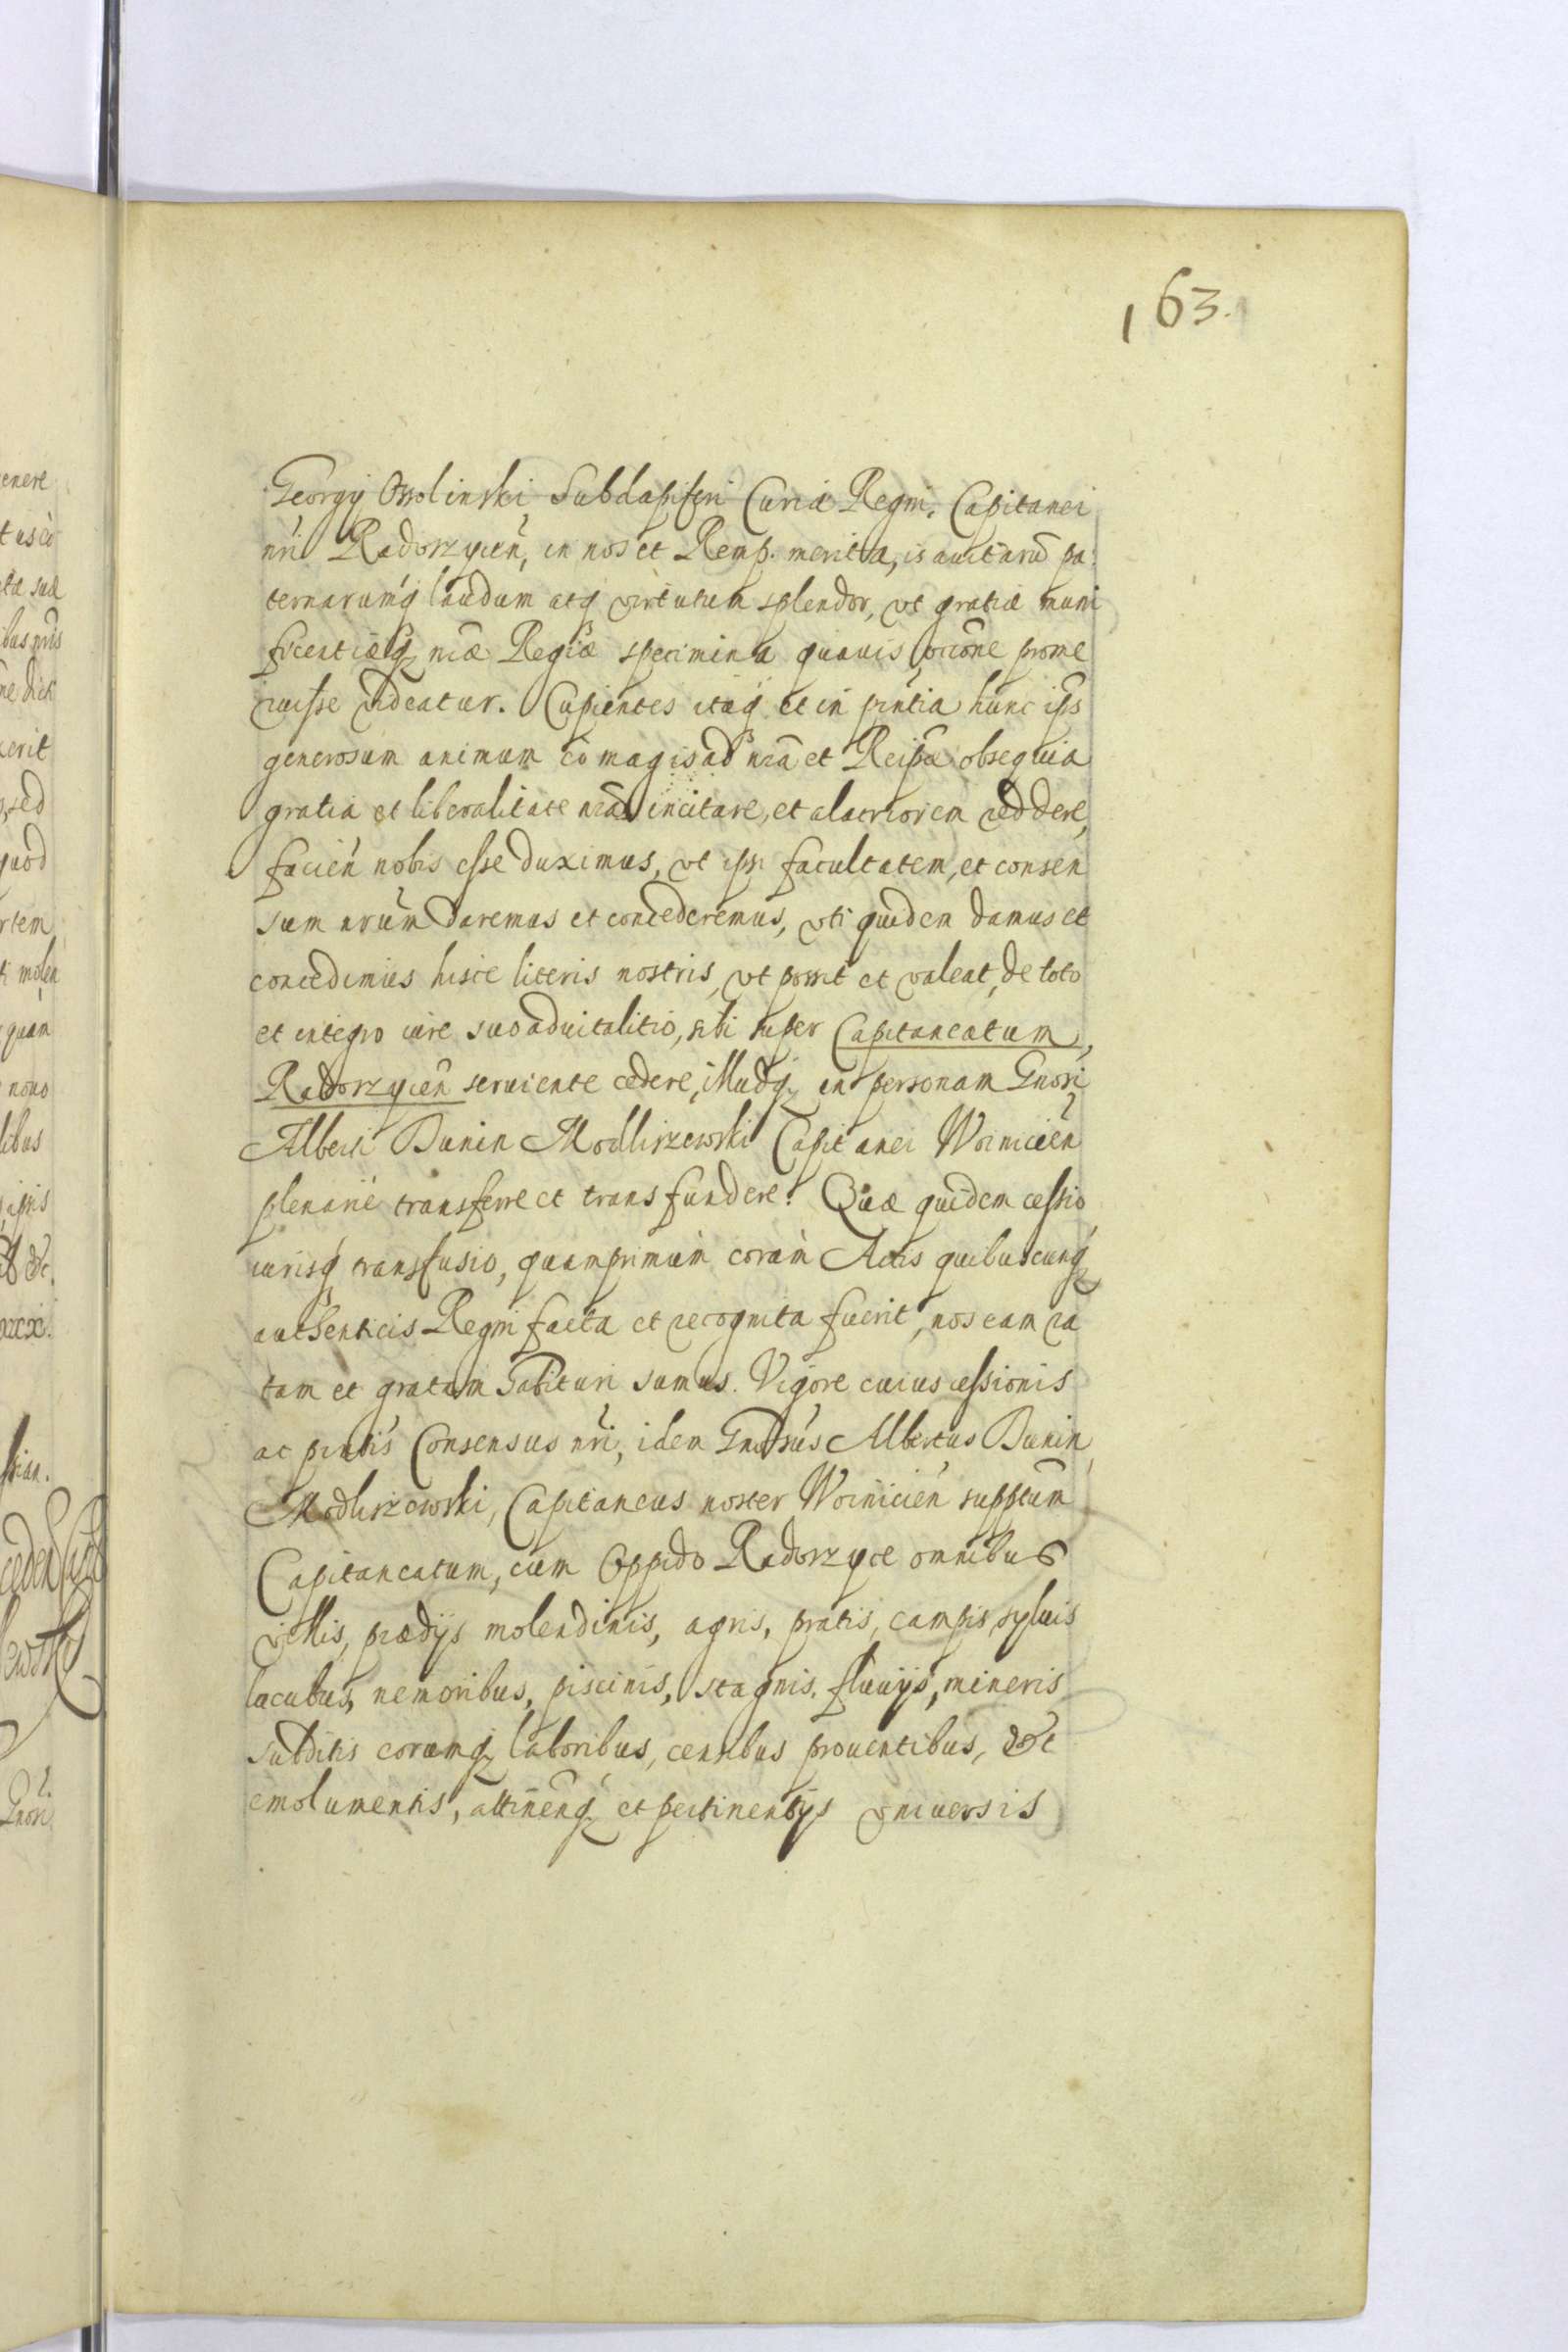 163.
Georgij Ossolinski Subdapiferi Curiæ Regni, Capitanei
nri Radoszycen, in nos et Remp. merita, is auitarũ pa-
ternarumq laudum atq virtutum splendor, vt gratiæ muni
ficentiæq nræ Regiæ specimina quauis occone prome
ruisse videatur. Cupientes itaq et in pñtia hunc ips
generosum animum eò magis ad nra et Reipcæ obsequia
gratia et liberalitate nra incitare, et alacriorem reddere,
facien nobis esse duximus, vt ipsi facultatem, et consen
sum nrum daremus et concederemus, vti quidem damus et
concedimus hisce literis nostris, vt possit et valeat, de toto
et integro iure suo aduitalitio, sibi super Capitaneatum,
Radoszycen seruiente cedere, illudq in personam Gnosi
Alberti Dunin Modliszewski Capitanei Woinicien
plenariè transferre et transfundere. Quæ quidem cessio
iurisq transfusio, quamprimum coram Actis quibuscunq
authenticis Regni facta et recognita fuerit, nos eam ra
tam et gratam habituri sumus. Vigore cuius cessionis
ac pntis Consensus nri, idem Gnosus Albertus Dunin
Modliszewski, Capitaneus noster Woinicien supptum
Capitaneatum, cum Oppido Radoszyce omnibus
villis, prædijs molendinis, agris, pratis, campis, syluis
lacubus, nemoribus, piscinis, stagnis, fluuijs, mineris
subditis eorumq laboribus, censibus prouentibus,
emolumentis, attinenq et pertinentijs vniuersis
enere
ita sua
ibus nris
ne dict
xerit
sed
quod
rtem
ti molen
quam
nono
libus
ipsis
Gnosi